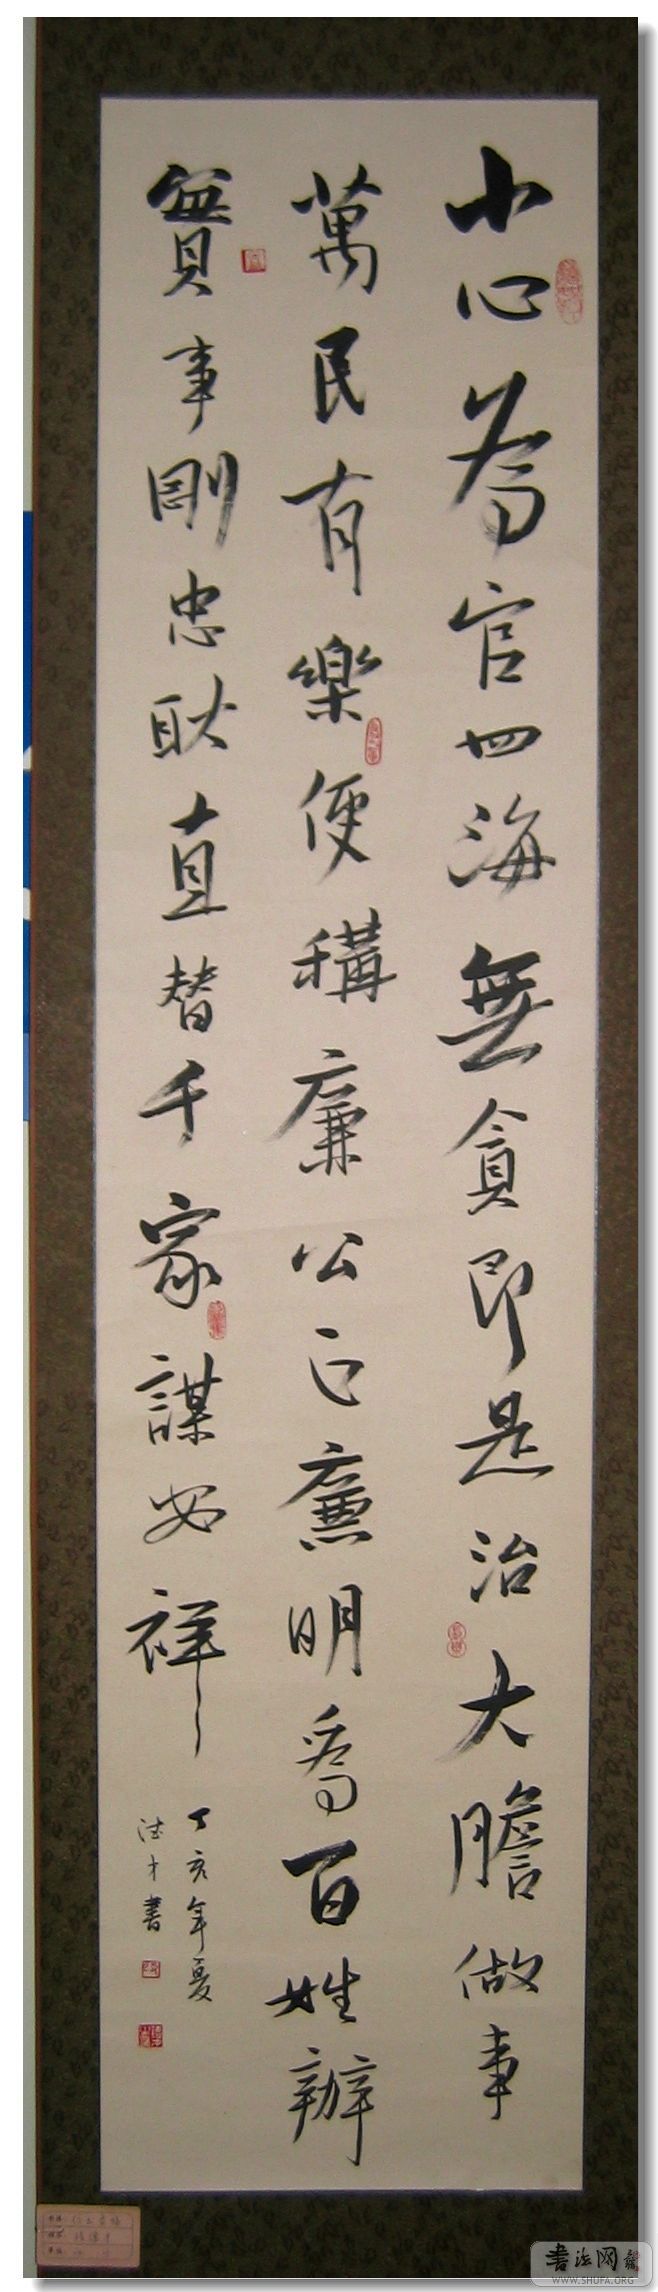 小心為官四海無貪即是治大膽做事
萬民有樂便稱廉公正廉明為百姓辦
實事剛忠耿直替千家謀安祥
丁亥年夏
德才書
書法网
WWW.SHUFA.ORG